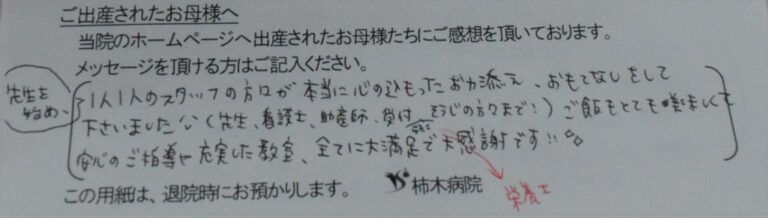 ご出産されたお母様へ
当院のホームページへ出産されたお母様たちにご感想を頂いております。
メッセージを頂ける方はご記入ください。
先生を始め、
1人1人のスタッフの方々が本当に心の込もったお力添え、おもてなしをして
下さいました^^(先生、看護士、助産師、受付 そうじの方々まで!)ご飯もとても美味しくて
安心のご指導や充実した教室、全てに大満足で大感謝です!!
この用紙は、退院時にお預かりします。
柿木病院
栄養士